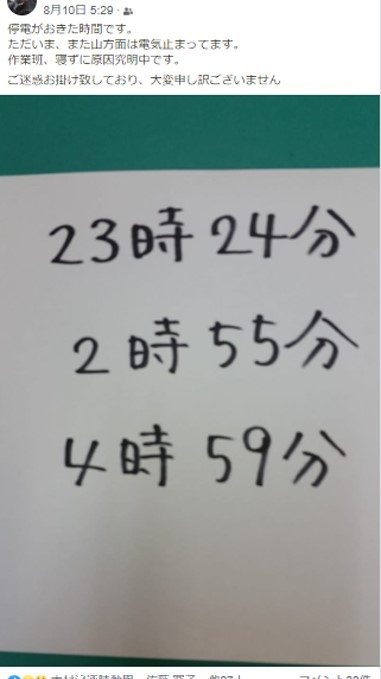 8月10日 5:29
停電がおきた時間です。
ただいま、また山方面は電気止まってます。
作業班、寝ずに原因究明中です。
ご迷惑お掛け致しており、大変申し訳ございません
23時24分
2時55分
4時59分